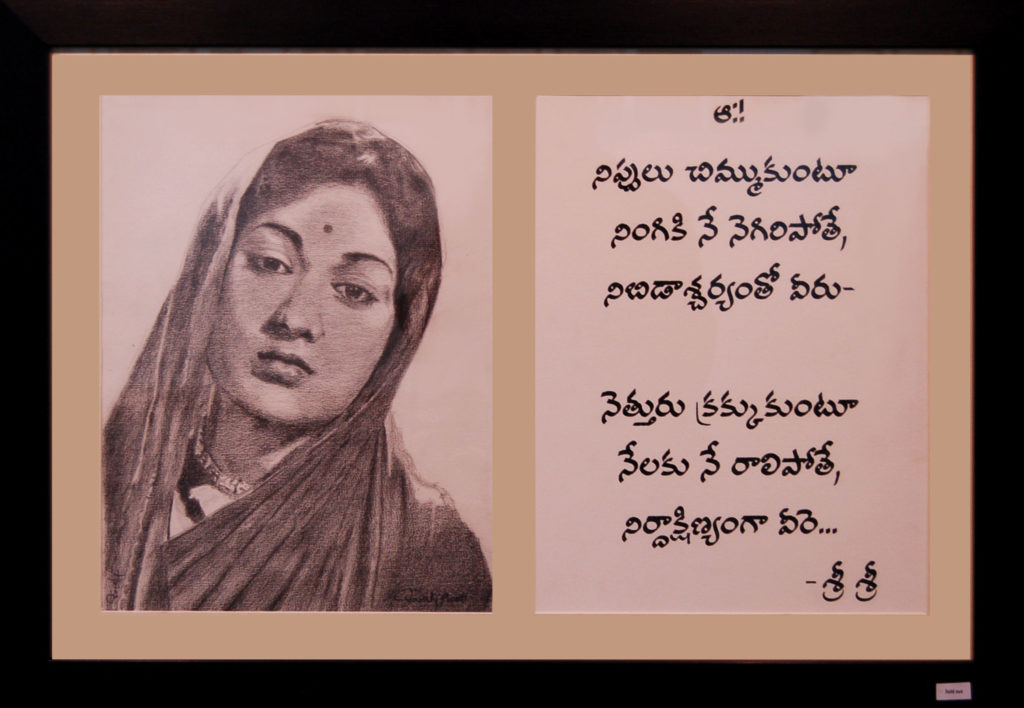 ఆ:!
నిప్పులు చిమ్ముకుంటూ
నింగికి నే నెగిరిపోతే,
నిబిడాశ్చర్యంతో వీరు-
నెత్తురు క్రక్కుకుంటూ
నేలకు నే రాలిపోతే,
నిర్దాక్షిణ్యంగా వీరె...
- శ్రీ శ్రీ